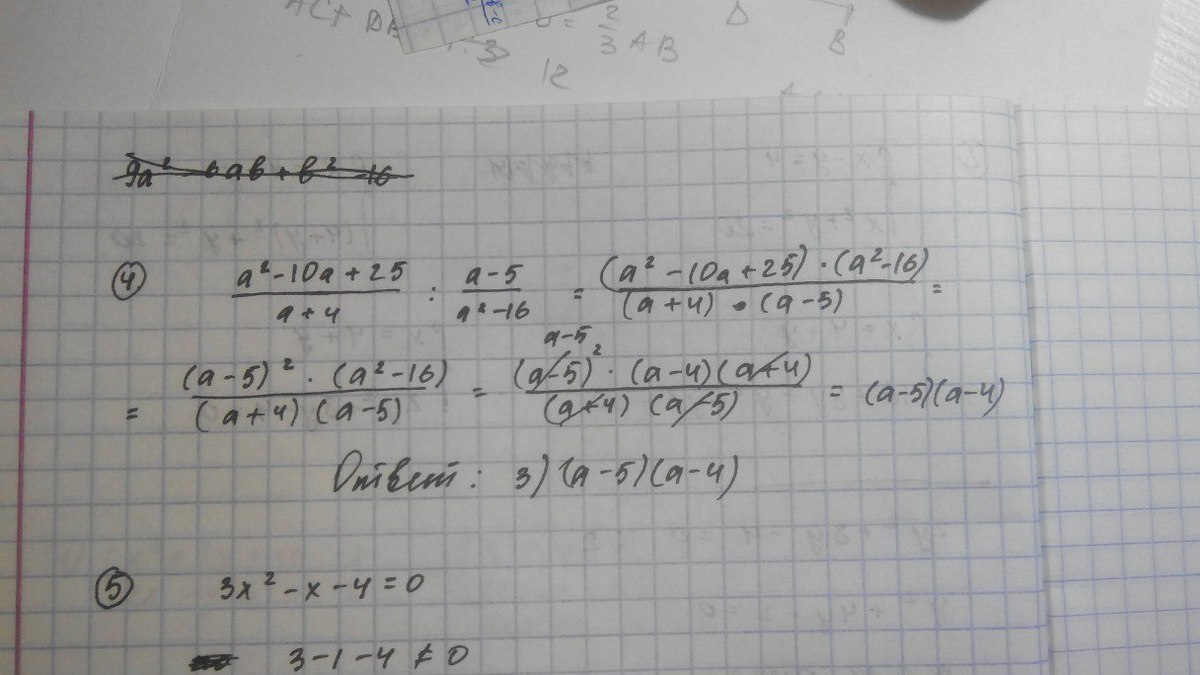 AC+
= 2/3 AB
B
12
9a² - 6ab + b² - 16
④ (a² - 10a + 25)/(a + 4) : (a - 5)/(a² - 16) = ((a² - 10a + 25) · (a² - 16))/((a + 4) · (a - 5)) =
a-5
= ((a - 5)² · (a² - 16))/((a + 4)(a - 5)) = ((a - 5)² · (a - 4)(a + 4))/((a + 4)(a - 5)) = (a - 5)(a - 4)
Ответ: 3) (a - 5)(a - 4)
⑤ 3x² - x - 4 = 0
3 - 1 - 4 ≠ 0